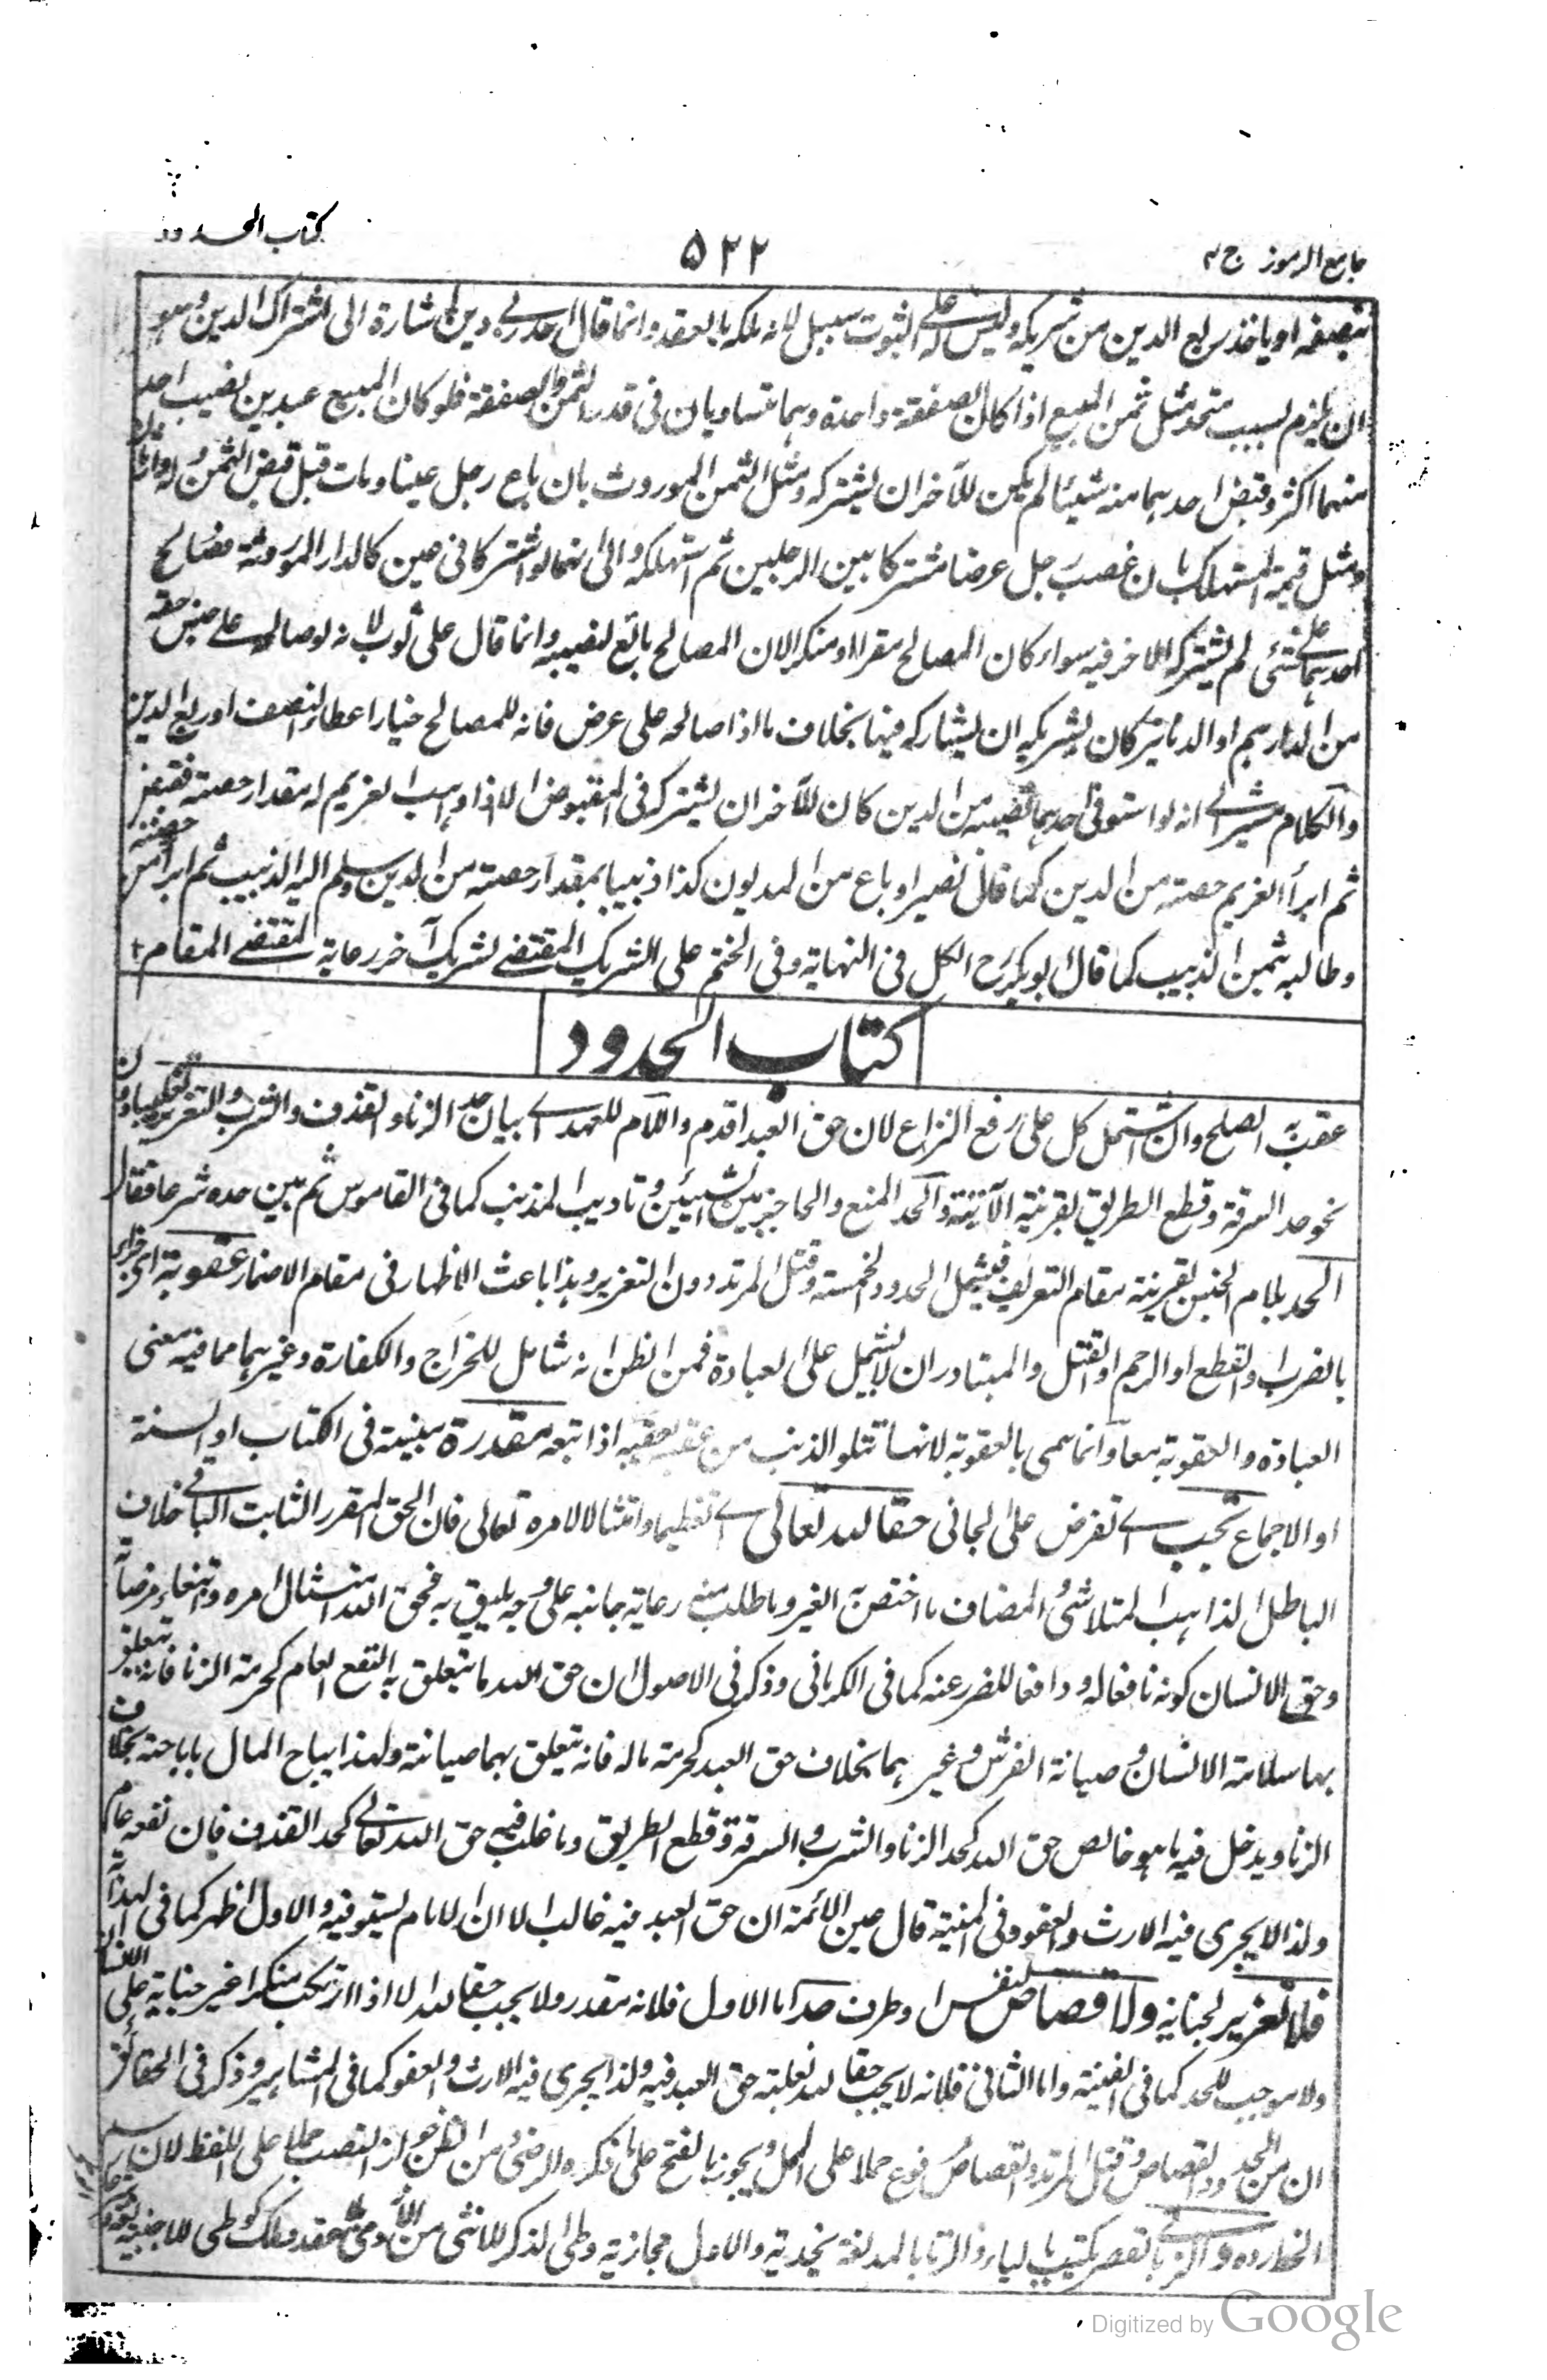 جامع الرموز ج ٣
٥٢٢
كتاب الحدود
بنصفه او ياخذ ربع الدين من شريكه وليس له على الثوب سبيل لانه ملكه بالعقد وانما قال احد ربى دين اشارة الى اشتراك الدين وهو
ان يلزم بسبب متحد مثل ثمن المبيع اذا كان الصفقة واحدة وهما متساويان فى قدر الثمن والصفقة فلو كان المبيع عبدين نصيب احد
منهما اكثر وقبض احدهما منه شيئا لم يكن للآخر ان يشتركه ومثل الثمن الموروث بان باع رجل عينا ومات قبل قبض الثمن وله وارثان
ومثل قيمة المستهلك بان غصب رجل عرضا مشتركا بين الرجلين ثم استهلكه والى انهما لو اشتركا فى عين كالدار الموروثة فصالح
احدهما على شئ لم يشتركه الآخر فيه سواء كان المصالح مقرا او منكرا لان المصالح بائع لنصيبه وانما قال على ثوب لانه لو صالحه على جنس حقه
من الدراهم او الدنانير كان لشريكه ان يشاركه فيها بخلاف ما اذا صالحه على عرض فانه للمصالح خيار اعطاء النصف او ربع الدين
والكلام مشير الى انه لو استوفى احدهما نصيبه من الدين كان للآخر ان يشتركه فى المقبوض الا اذا وهب الغريم له مقدار حصته فقبض
ثم ابرأ الغريم حصته من الدين كما قال نصير او باع من المديون كذا زبيبا بمقدار حصته من الدين وسلم اليه الزبيب ثم ابرأ من حصته
وطالبه ثمن الزبيب كما قال ابو بكر رح الكل فى النهاية وفى الختم على الشريك المقتضى لشريك آخر رعاية لمقتضى المقام
كتاب الحدود
عقب به الصلح وان اشتمل كل على رفع النزاع لان حق العبد اقدم واللام للعهد اى بيان حد الزنا والقذف والشرب والتعزير
نحو حد السرقة وقطع الطريق بقرينة الآتية والحد المنع والحاجز بين الشيئين وتاديب المذنب كما فى القاموس ثم بين حده شرعا فقال
الحد بلام الجنس بقرينة مقام التعريف فيشمل الحدود الخمسة وقتل المرتد دون التعزير وهذا باعث الاظهار فى مقام الاضمار عقوبة اى جزاء
بالضرب والقطع او الرجم او القتل والمتبادر ان لا يشمل على العبادة فمن الظن انه شامل للخراج والكفارة وغيرهما مما فيه معنى
العبادة والعقوبة معا وانما سمى بالعقوبة لانها تتلو الذنب من عقبه يعقبه اذا تبعه مقدرة مبينة فى الكتاب او السنة
او الاجماع تجب اى تفرض على الجانى حقا لله تعالى اى تعظيما وامتثالا لامره تعالى فان الحق المقرر الثابت الباقى خلاف
الباطل الذاهب المتلاشى والمضاف ما اختص به الغير وما طلب منه رعاية جانبه على وجه يليق به فحق الله امتثال امره وابتغاء مرضاته
وحق الانسان كونه نافعا له ودافعا للضرر عنه كما فى الكرمانى وذكر فى الاصول ان حق الله ما يتعلق به النفع العام كحرمة الزنا فانه يتعلق
بها سلامة الانسان وصيانة الفرش وغيرهما بخلاف حق العبد كحرمة ماله فانه يتعلق بهما صيانته ولهذا يباح المال باباحته بخلاف
الزنا ويدخل فيه ما هو خالص حق الله كحد الزنا والشرب والسرقة وقطع الطريق وما غلب فيه حق الله تعالى كحد القذف فان نفعه عام
ولذا لا يجرى فيه الارث والعفو وفى المنية قال عين الائمة ان حق العبد فيه غالب الا ان الامام يستوفيه والاول اظهر كما فى الهداية
فلا تعزير لجناية ولا قصاص لنفس او طرف حد اما الاول فلانه مقدر ولا يجب حقا لله الا اذا ارتكب منكرا غير جناية على الانسان
ولا موجب للحد كما فى الغنية واما الثانى فلانه لا يجب حقا لله لغلبة حق العبد فيه ولذا يجرى فيه الارث والعفو كما فى المشاهير وذكر فى الحقائق
ان من الحدود القصاص وقتل المرتد والقصاص رفوع حملا على المحل ويجوز بالفتح على ما ذكره الرضى ومن الظن جواز النصب حملا على اللفظ لان
والزنا بالقصر يكتب بالياء والزنا بالمد لغة نجدية والاول حجازية وطى الذكر للانثى من عقد وملك كوطى للاجنبية
Digitized by Google